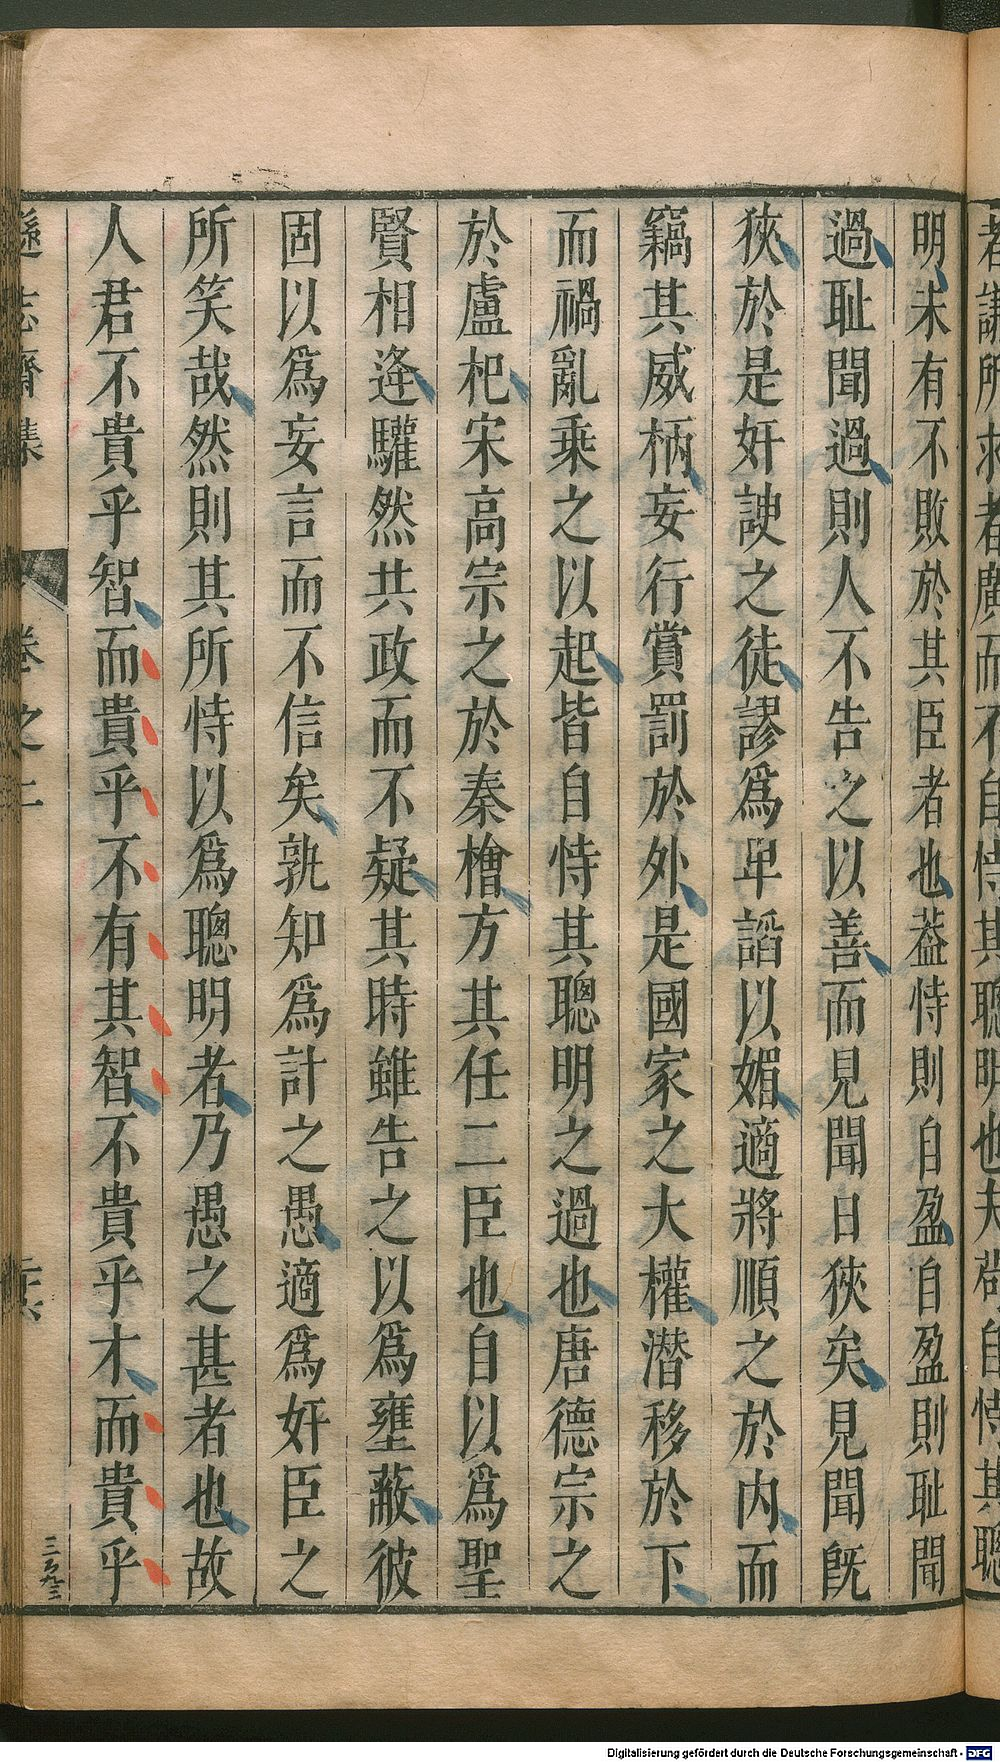 者議所求者廣而不自恃其聰明也夫苟自恃其聰
明未有不敗於其臣者也葢恃則自盈自盈則耻聞
過耻聞過則人不告之以善而見聞日狹矣見聞旣
狹於是奸諛之徒謬爲卑謟以媚適將順之於內而
竊其威柄妄行賞罰於外是國家之大權潛移於下
而禍亂乘之以起皆自恃其聰明之過也唐德宗之
於盧杞宋高宗之於秦檜方其任二臣也自以爲聖
賢相逄驩然共政而不疑其時雖告之以爲壅蔽彼
固以爲妄言而不信矣孰知爲計之愚適爲奸臣之
所笑哉然則其所恃以爲聰明者乃愚之甚者也故
人君不貴乎智而貴乎不有其智不貴乎才而貴乎
遜志齋集 卷之二 二六
Digitalisierung gefördert durch die Deutsche Forschungsgemeinschaft - DFG